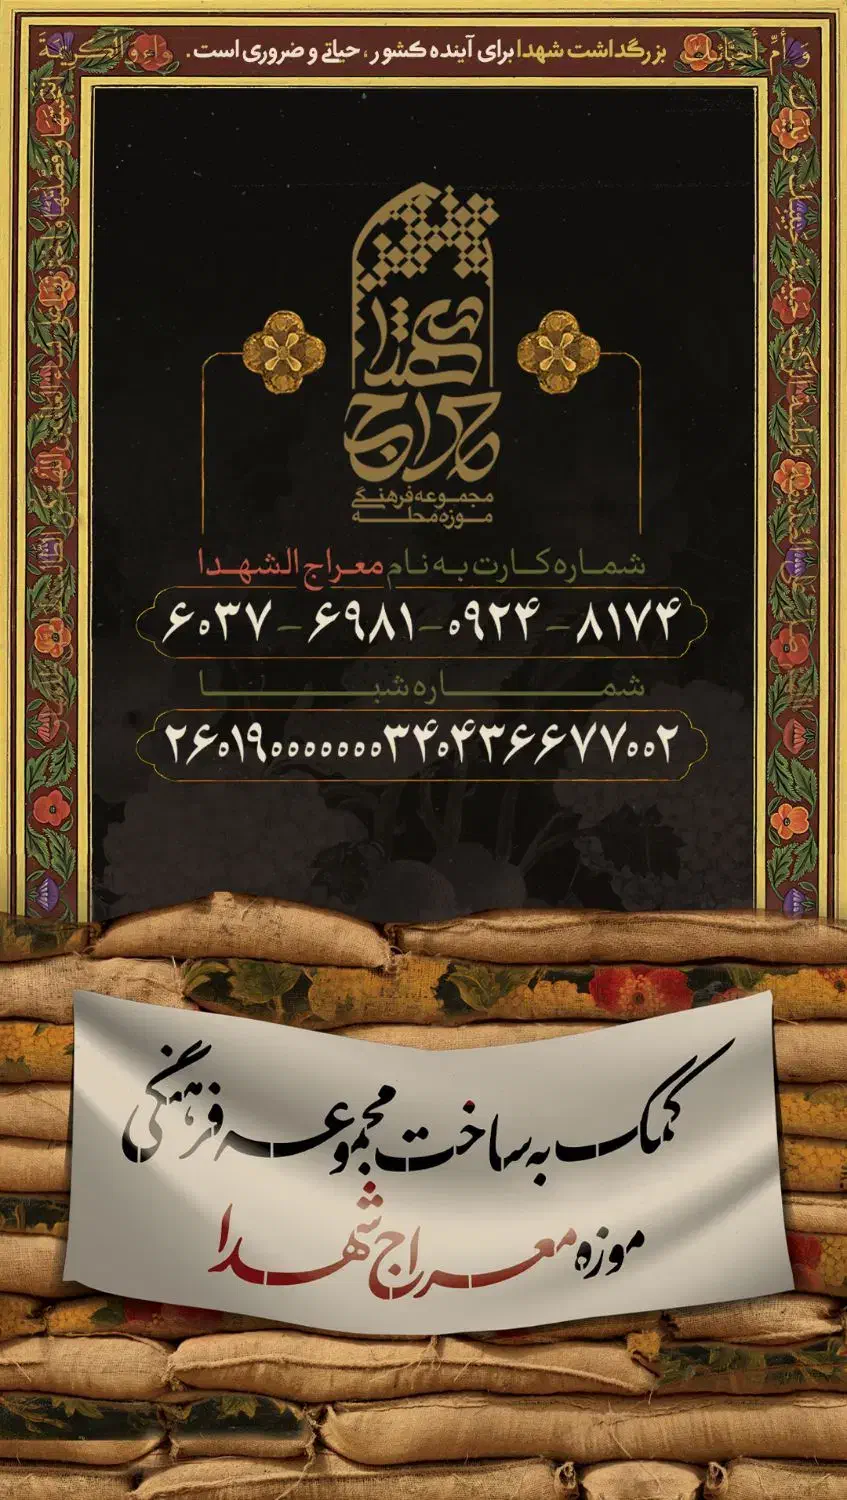 بزرگداشت شهدا برای آینده کشور، حیاتی و ضروری است.
معراج شهدا
مجموعه فرهنگی
موزه محله
شماره کارت به نام معراج الشهدا
۶۰۳۷ - ۶۹۸۱ - ۰۹۲۴ - ۸۱۷۴
شماره شبا
۲۶۰۱۹۰۰۰۰۰۰۰۳۴۰۴۳۶۶۷۷۰۰۲
کمک به ساخت مجموعه فرهنگی
موزه معراج شهدا